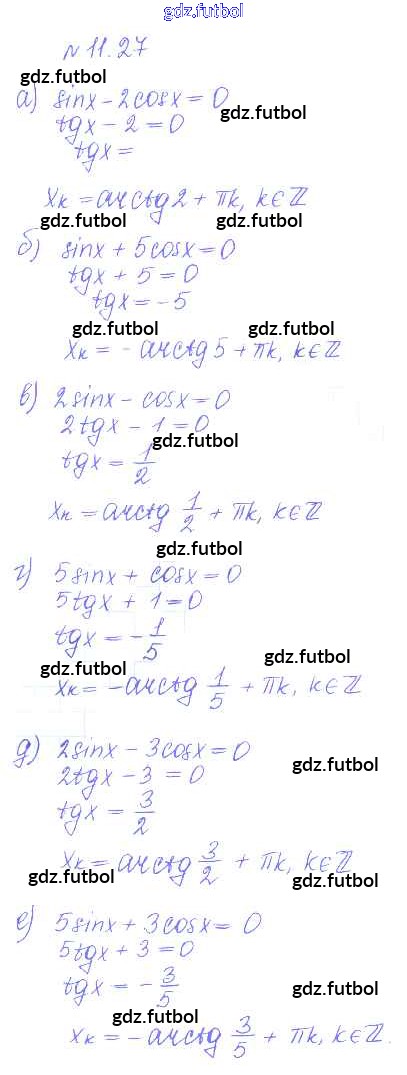 gdz.futbol
№ 11.27
gdz.futbol
а) sinx - 2cosx = 0
gdz.futbol
tgx - 2 = 0
tgx =
gdz.futbol
xₖ = arctg 2 + πk, k∈ℤ
gdz.futbol gdz.futbol
б) sinx + 5cosx = 0
tgx + 5 = 0
tgx = -5
gdz.futbol gdz.futbol
xₖ = - arctg 5 + πk, k∈ℤ
в) 2sinx - cosx = 0
2tgx - 1 = 0
gdz.futbol
tgx = 1/2
xₖ = arctg 1/2 + πk, k∈ℤ
gdz.futbol
г) 5sinx + cosx = 0
5tgx + 1 = 0
tgx = - 1/5
gdz.futbol gdz.futbol
xₖ = - arctg 1/5 + πk, k∈ℤ
д) 2sinx - 3cosx = 0
gdz.futbol
2tgx - 3 = 0
tgx = 3/2
xₖ = arctg 3/2 + πk, k∈ℤ
gdz.futbol gdz.futbol
е) 5sinx + 3cosx = 0
5tgx + 3 = 0
tgx = - 3/5
gdz.futbol
gdz.futbol
xₖ = - arctg 3/5 + πk, k∈ℤ.